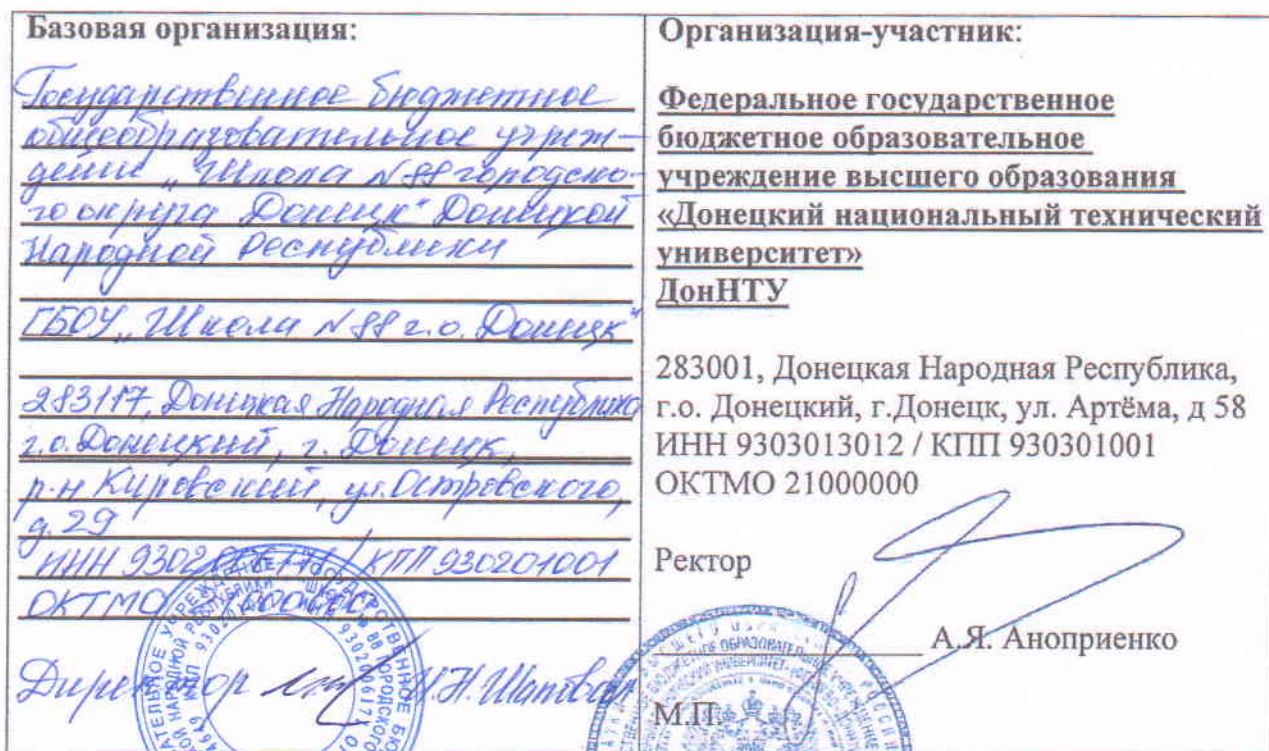 Базовая организация:
Государственное бюджетное
общеобразовательное учреж-
дение „Школа №88 городско-
го округа Донецк" Донецкой
Народной Республики
ГБОУ „Школа №88 г.о. Донецк"
283117, Донецкая Народная Республика
г.о. Донецкий, г. Донецк,
р-н Кировский, ул. Островского,
д. 29
ИНН / КПП 930201001
ОКТМО
Директор
Организация-участник:
Федеральное государственное
бюджетное образовательное
учреждение высшего образования
«Донецкий национальный технический
университет»
ДонНТУ
283001, Донецкая Народная Республика,
г.о. Донецкий, г.Донецк, ул. Артёма, д 58
ИНН 9303013012 / КПП 930301001
ОКТМО 21000000
Ректор
А.Я. Аноприенко
М.П.